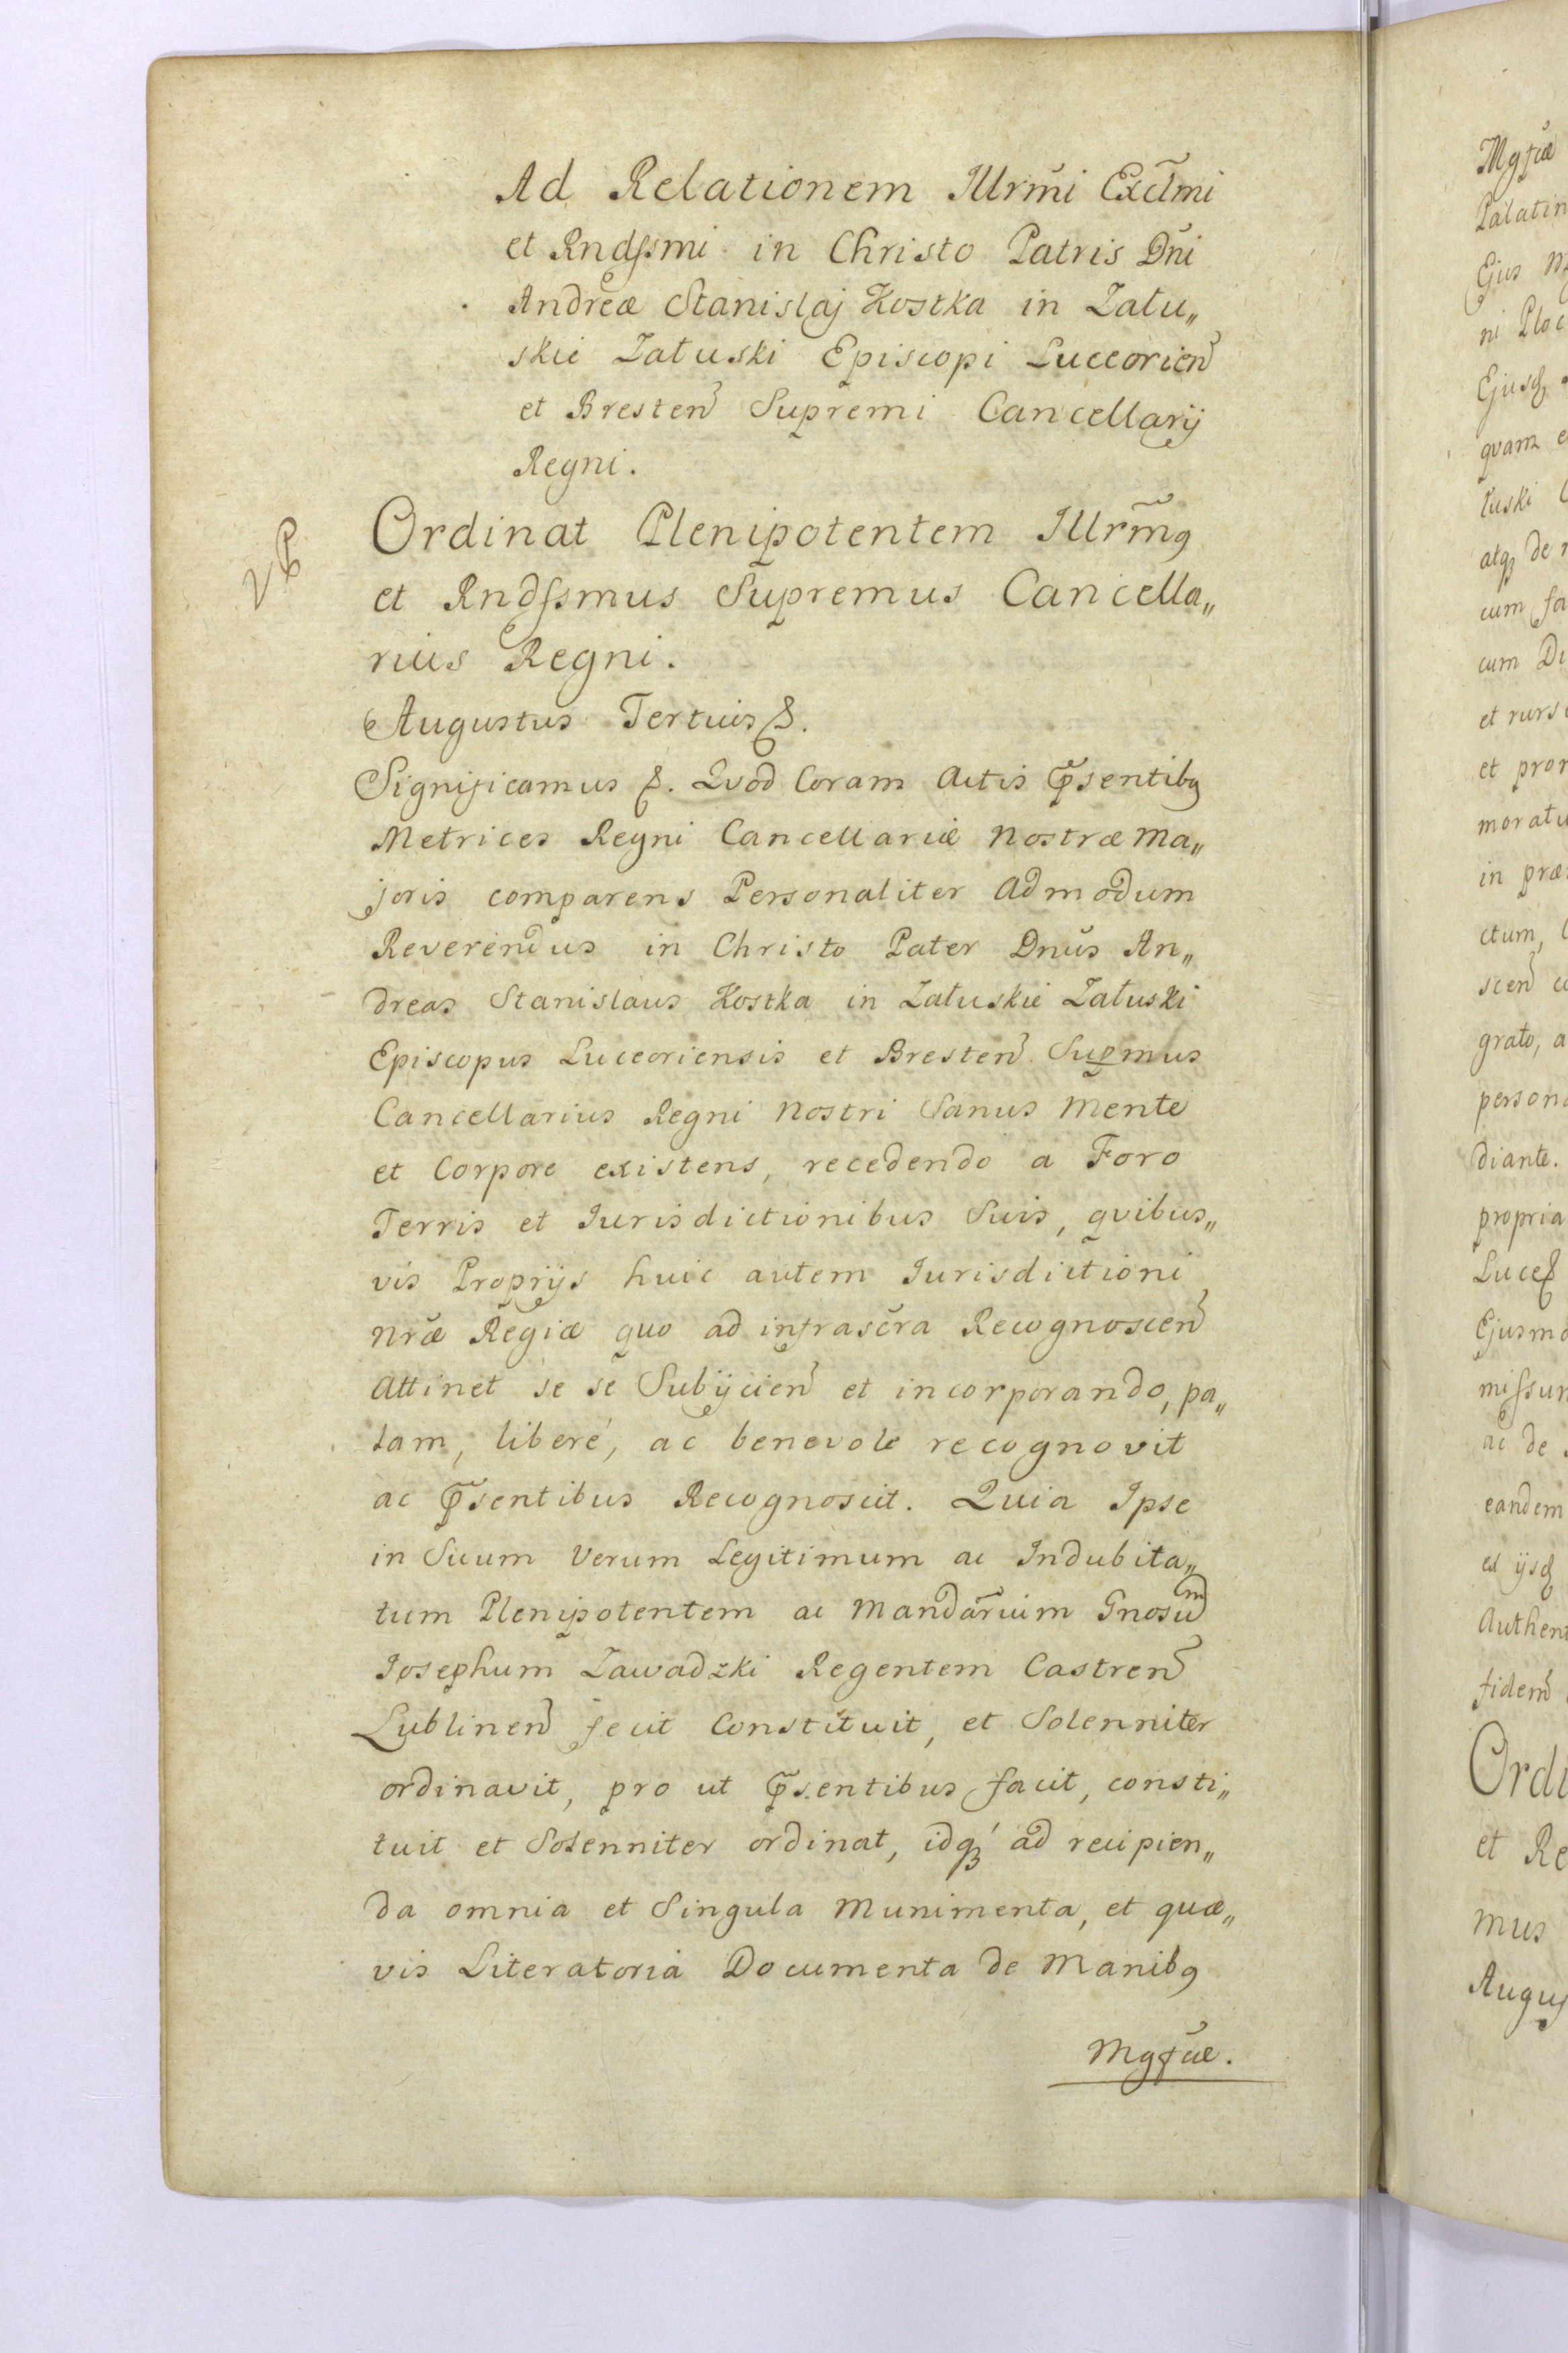 Ad Relationem Illrm̃i Excl̃mi
et Rndssmi in Christo Patris Dñi
Andreæ Stanislaj Kostka in Zału„
skie Załuski Episcopi Luceorien̄
et Bresten̄ Supremi Cancellarij
Regni.
Ordinat Plenipotentem Illrm̃9
et Rndssmus Supremus Cancella„
rius Regni.
Augustus Tertius &.
Significamus &. Qvod Coram Actis P̃sentibq
Metrices Regni Cancellariæ Nostræ Ma„
joris comparens Personaliter Admodum
Reverendus in Christo Pater Dnũs An„
dreas Stanislaus Kostka in Załuskie Załuski
Episcopus Luceoriensis et Bresten̄ Supmus
Cancellarius Regni Nostri Sanus Mente
et Corpore existens, recedendo a Foro
Terris et Iurisdictionibus Suis, qvibus„
vis Proprijs huic autem Iurisdictioni
Nræ̃ Regiæ quo ad infrascr̃a Recognoscen̄
Attinet se se Subijcien̄ et incorporando, pa„
lam, liberé, ac benevole recognovit
ac P̃sentibus Recognoscit. Quia Ipse
in Suum Verum Legitimum ac Indubita„
tum Plenipotentem ac Mandãrium Gnosum
Iosephum Zawadzki Regentem Castren̄
Lublinen̄ fecit Constituit, et Solenniter
ordinavit, pro ut P̃sentibus facit, consti„
tuit et Solenniter ordinat, idq́ꝫ ad recipien„
da omnia et Singula Munimenta, et quæ„
vis Literatoria Documenta de Manib9
Mgfcæ̃.
Mgfcæ̃
Palatin
Ejus
ni Ploc
Ejusq
qvam
łuski
atqꝫ de
cum fa
cum
et rurs
et pror
moratu
in præ
ctum,
scen̄
grato, a
persona
diante.
propria
Luce&
Ejusmo
missum
ac de
eandem
et ijsq
Authent
fidem̄
Ordi
et Re
mus
Augus